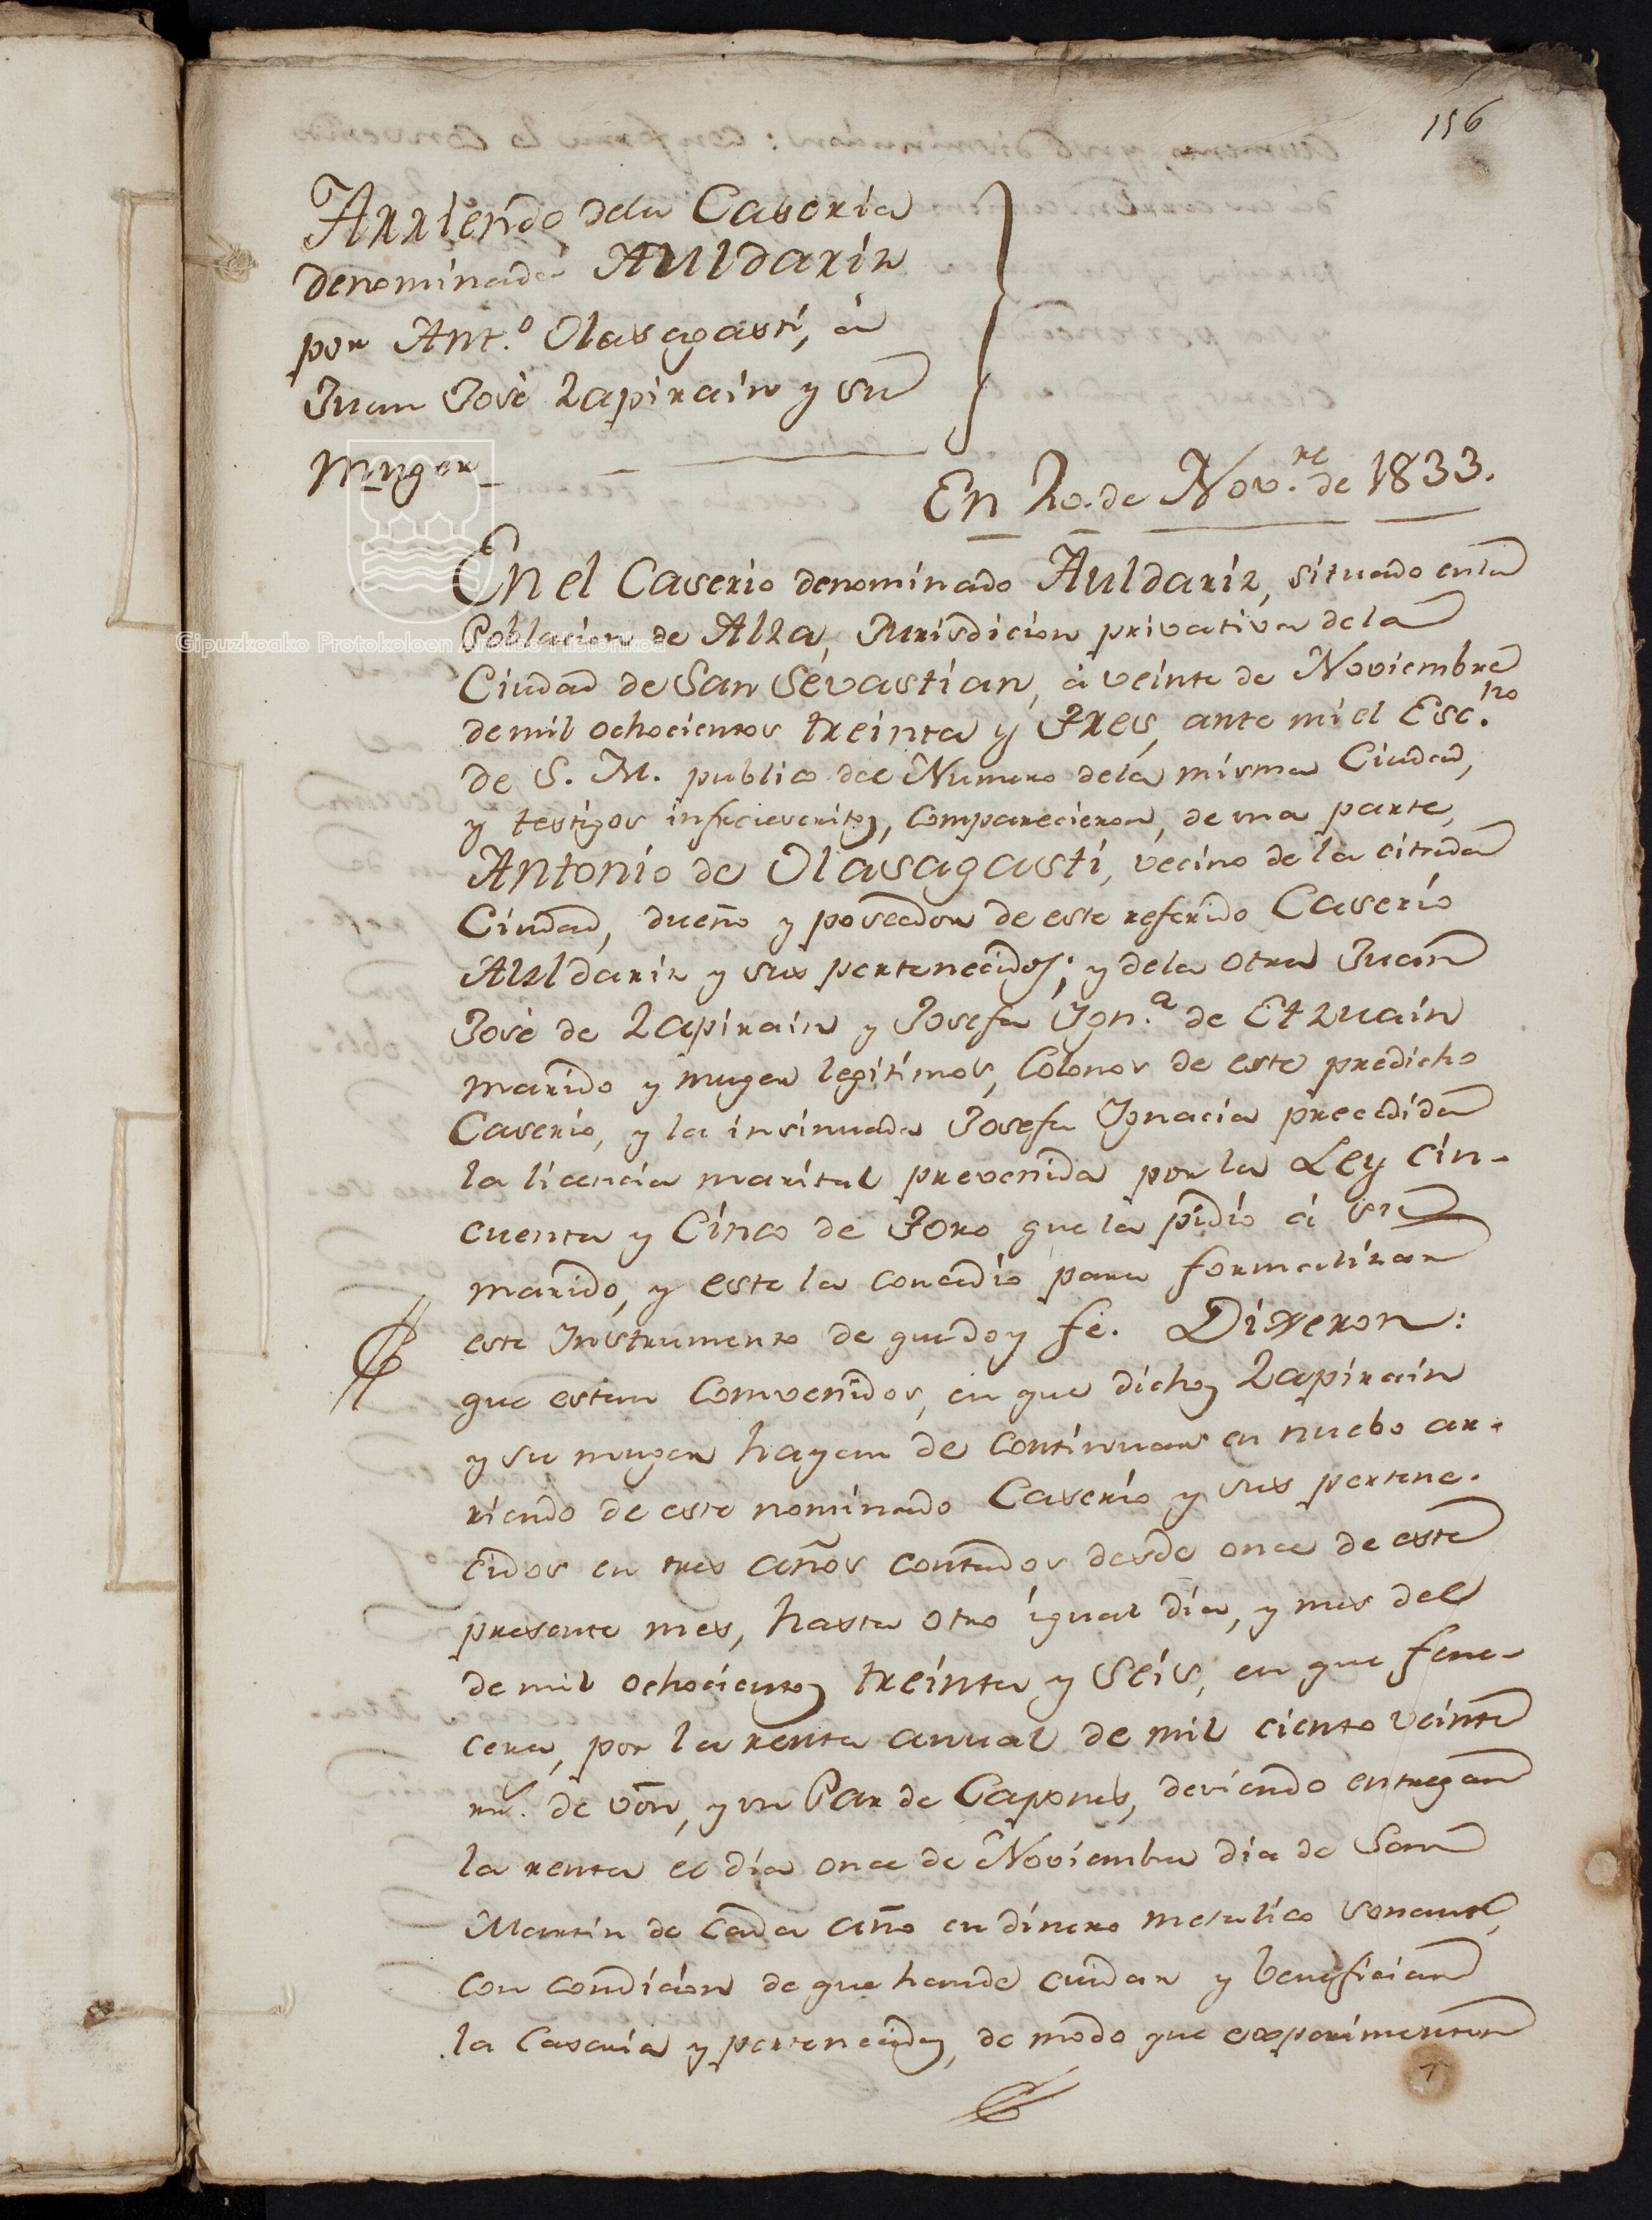 156
Arriendo dela Caseria
denominada Auldariz
por Ant.º Olasagasti, à
Juan Josè Zapirain y su
Muger
En 20. de Nov.re de 1833.
En el Caserio denominado Auldariz, situado enla
Poblacion de Alza, Jurisdicion privativa dela
Ciudad de San Sevastian, à veinte de Noviembre
de mil ochocientos treinta y tres, ante mi el Esc.no
de S. M. publico del Numero dela misma Ciudad,
y testigos infraescritos, comparecieron, de una parte,
Antonio de Olasagasti, vecino de la citada
Ciudad, dueño y poseedor de este referido Caserio
Auldariz y sus pertenecidos; y dela otra Juan
Josè de Zapirain y Josefa Ygn.a de Etzuain
marido y muger legitimos, Colonos de este predicho
Caserio, y la insinuada Josefa Ygnacia precedida
la licencia marital prevenida por la Ley cin-
cuenta y Cinco de Toro que la pidio à su
marido, y este la concedio para formalizar
este Ynstrumento de que doy fe. Dixeron:
que estan convenidos, en que dichos Zapirain
y su muger hayan de continuar en nuebo ar-
riendo de este nominado Caserio y sus pertene-
cidos en tres años contados desde once de este
presente mes, hasta otro igual dia, y mes del
de mil ochocientos treinta y seis, en que fene-
cera, por la renta anual de mil ciento veinte
rrs. de von, y un Par de Capones, deviendo entregar
la renta el dia once de Noviembre dia de San
Martin de Cada año en dinero metalico sonante,
con condicion de que hande cuidar y beneficiar
la Caseria y pertenecidos, de modo que experimenten
Gipuzkoako Protokoloen Artxibo Historikoa